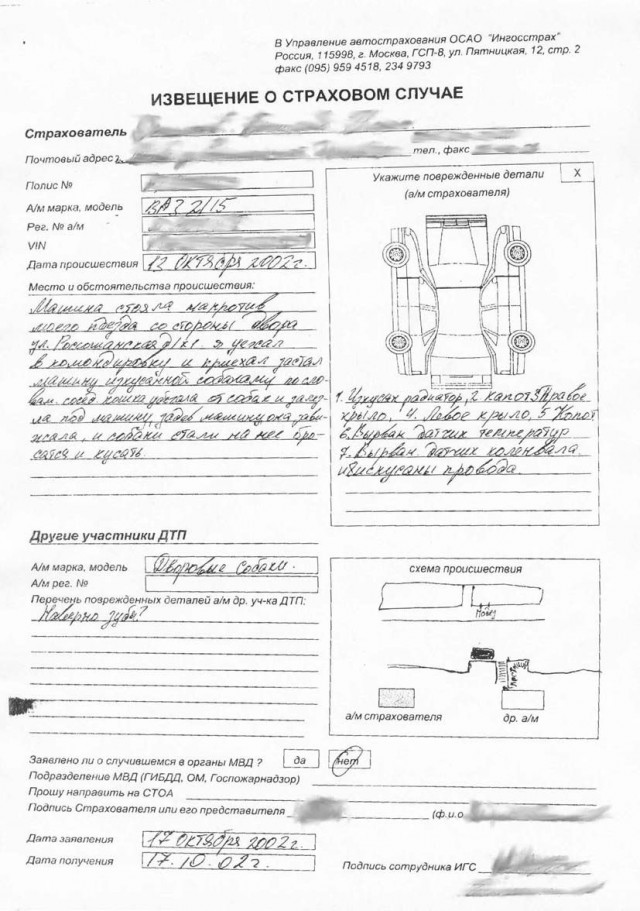 В Управление автострахования ОСАО "Ингосстрах"
Россия, 115998, г. Москва, ГСП-8, ул. Пятницкая, 12, стр. 2
факс (095) 959 4518, 234 9793
ИЗВЕЩЕНИЕ О СТРАХОВОМ СЛУЧАЕ
Страхователь
Почтовый адрес
тел., факс
Полис №
А/м марка, модель ВАЗ 2115
Рег. № а/м
VIN
Дата происшествия 13 октября 2002г.
Место и обстоятельства происшествия:
Машина стояла напротив
моего подъезда со стороны двора
ул. Россошанская я уезжал
в командировку и приехал застал
машину искусанной собаками по сло-
вам сосед кошка убегала от собак и залез-
ла под машину, задев машину она зави-
жала и собаки стали на нее бро-
сатся и кусать.
Укажите поврежденные детали
(а/м страхователя)
X
1. Искусан радиатор, 2 капот 3 Правое
крыло, 4. Левое крыло, 5 Капот
6. Вырван датчик температур
7. Вырван датчик коленвала
и искусаны провода.
Другие участники ДТП
А/м марка, модель Дворовые собаки.
А/м рег. №
Перечень поврежденных деталей а/м др. уч-ка ДТП:
Наверно зубы?
схема происшествия
а/м страхователя
др. а/м
Заявлено ли о случившемся в органы МВД ? да нет
Подразделение МВД (ГИБДД, ОМ, Госпожарнадзор)
Прошу направить на СТОА
Подпись Страхователя или его представителя (ф.и.о
Дата заявления 17 октября 2002г.
Дата получения 17.10.02г.
Подпись сотрудника ИГС